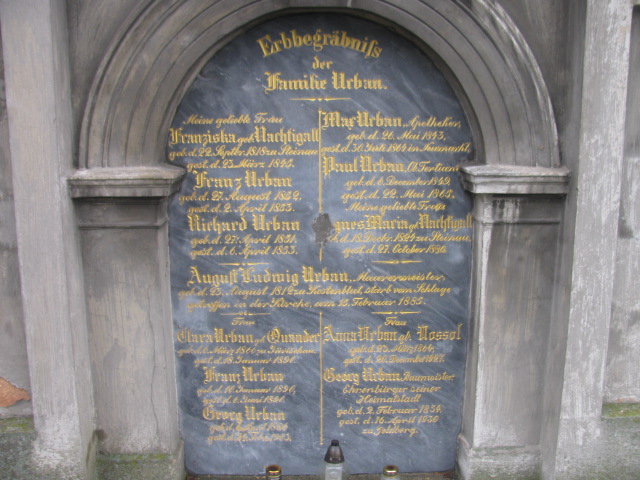 Erbbegräbniß
der
Familie Urban.
Meine geliebte Frau
Franziska geb. Nachtigall
geb. d. 22. Septbr. 1818 zu Steinau
gest. d. 23. März
Franz Urban
geb. d. 27. August 1852.
gest. d. 2. April 1853.
Richard Urban
geb. d. 27. April 1851.
gest. d. 6. April 1853.
Max Urban, Apotheker,
geb. d. 26. Mai 1843.
gest. d. 30. Juli
Paul Urban, Ob. Tertian
geb. d. 6. December
gest. d. 22. Mai
Meine geliebte Frau
Maria geb. Nachtigall
geb. d. 18. Decbr. 1824 zu Steinau
gest. d. 27. October
August Ludwig Urban, Maurermeister,
geb. d. 25. August 1812 zu Kostenblut, starb vom Schlage
getroffen in der Kirche, am 15. Februar 1885.
Frau
Clara Urban geb. Quander
gest. d. 18. Januar
Franz Urban
geb. d. 10. Januar
gest. d. 6. Juni
Georg Urban
Frau
Anna Urban gb. Nossol
geb. d. 23. März
gest. d.
Georg Urban, Baumeister,
Ehrenbürger seiner
Heimatstadt
geb. d. 2. Februar 1854.
gest. d. 16. April 1930
zu Goldberg.